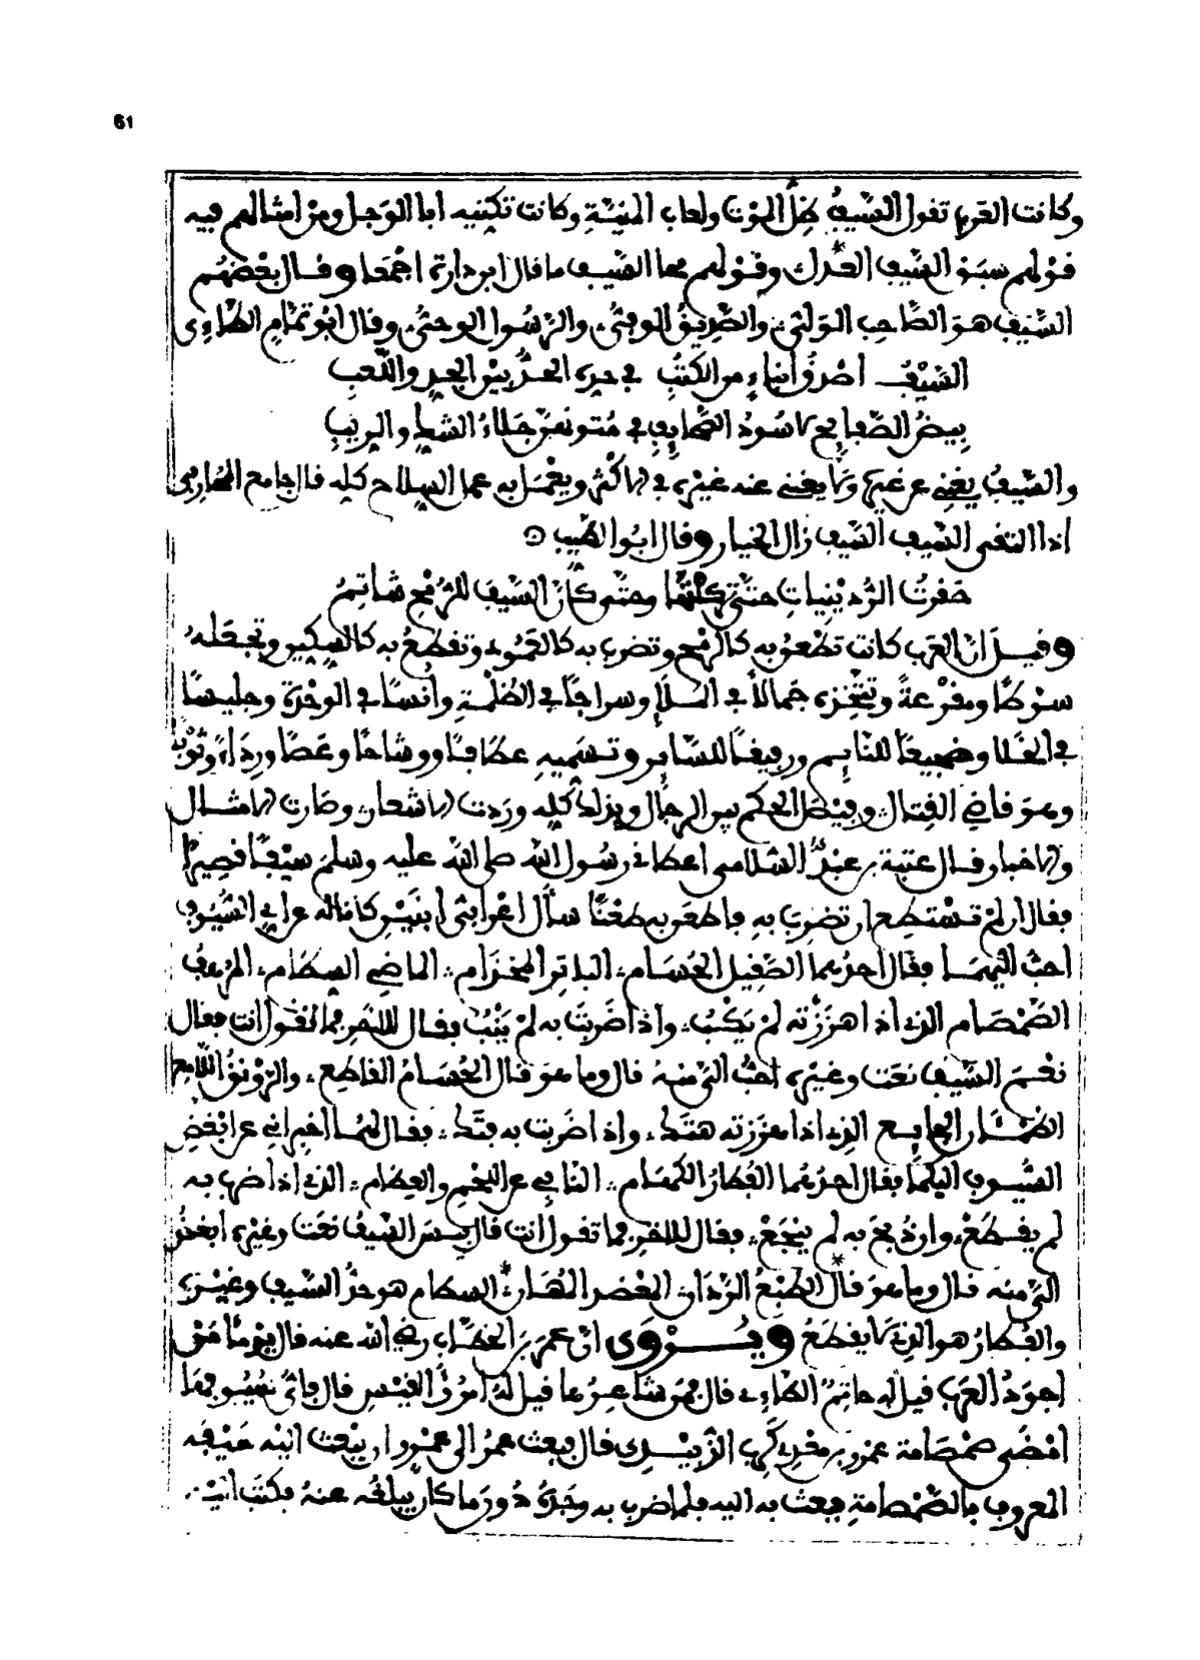 61
وكانت العرب تقول السيف ظل الموت ولعاب المنية وكانت تكنيه ابا الوجل ومن امثالهم فيه
قولهم سبق السيف العذل وقولهم محا السيف ما قال ابن دارة اجمعا وقال بعضهم
السيف هو الصاحب الولي والصديق الوفي والرسول الوحي وقال ابو تمام الطاءي
السيف اصدق انباء من الكتب في حده الحد بين الجد واللعب
بيض الصفايح لا سود الصحايف في متونهن جلاء الشك والريب
والسيف يغني عن غيره ولا يغني عنه غيره في الاكثر ويعمل به عمل السلاح كله قال جامع المحاربي
اذا التقى السيف السيف زال الخيار وقال ابو الطيب
حقرت الردينيات حتى كلها وحتى كان السيف للرمح شاتم
وقيل ان العرب كانت تطعن به كالرمح وتضرب به كالعمود وتقطع به كالسكين وتجعله
سوطا ومقرعة وتتخذه جمالا في الملا وسراجا في الظلمة وانسا في الوحدة وجليسا
في الخلا وضجيعا للنايم ورفيقا للساير وتسميه عطافا ووشاحا وعصا ورداء وثوبا
وهو قاضي القتال وفيصل الحكم بين الرجال وبذلك كله وردت الاشعار وصارت الامثال
والاخبار قال عتبة بن عبد السلامي اعطاني رسول الله صلى الله عليه وسلم سيفا قصيرا
فقال ان لم تستطع ان تضرب به فاطعن به طعنا سال اعرابي ابنين كانا له عن اي السيوف
احب اليهما فقال احدهما الصقيل الحسام الباتر المخذام الماضي السطام المرهف
الصمصام الذي اذا هززته لم يكب واذا ضربت به لم ينب فقال للاخر فما تقول انت فقال
نعم السيف نعت وغيره احب الي منه قال وما هو قال الحسام القاطع والرونق اللامع
الظمآن الجايع الذي اذا هززته هتك واذا ضربت به بتك فقال لهما اخبراني عن ابغض
السيوف اليكما فقال احدهما الفطار الكهام النابي عن اللحم والعظام الذي اذا ضرب به
لم يقطع وان ذبح به لم ينجع فقال للاخر فما تقول انت قال بيس السيف نعت وغيره ابغض
الي منه قال وما هو قال الطبع الددان المعضد المهان السطام هو حد السيف وغيره
والفطار هو الذي لا يقطع ويروى ان عمر بن الخطاب رضي الله عنه قال يوما من
اجود العرب قيل له حاتم الطاءي قال فمن شاعرها قيل له امرؤ القيس قال فاي سيوفها
امضى صمصامة عمرو بن معدي كرب الزبيدي قال فبعث عمر الى عمرو ان يبعث اليه سيفه
المعروف بالصمصامة فبعث به اليه فلما ضرب به وجده دون ما كان يبلغه عنه فكتب اليه